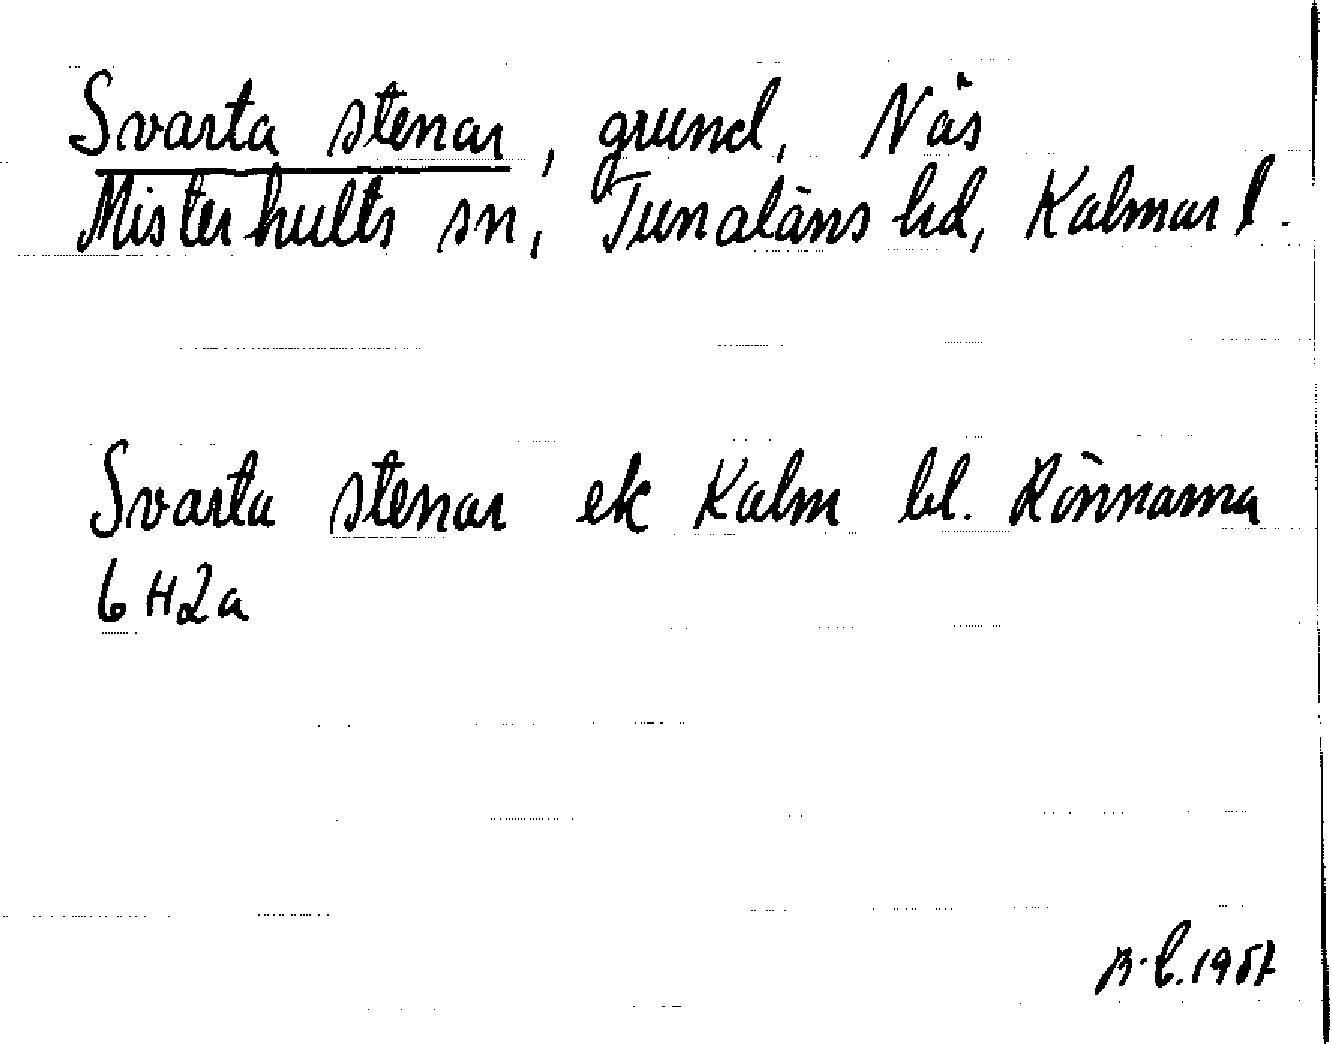 Svarta stenar, grund, Näs
Misterhults sn, Tunaläns hd, Kalmar l.
Svarta stenar ek Kalm bl. Rönnarna
6H2a
B.L. 1957